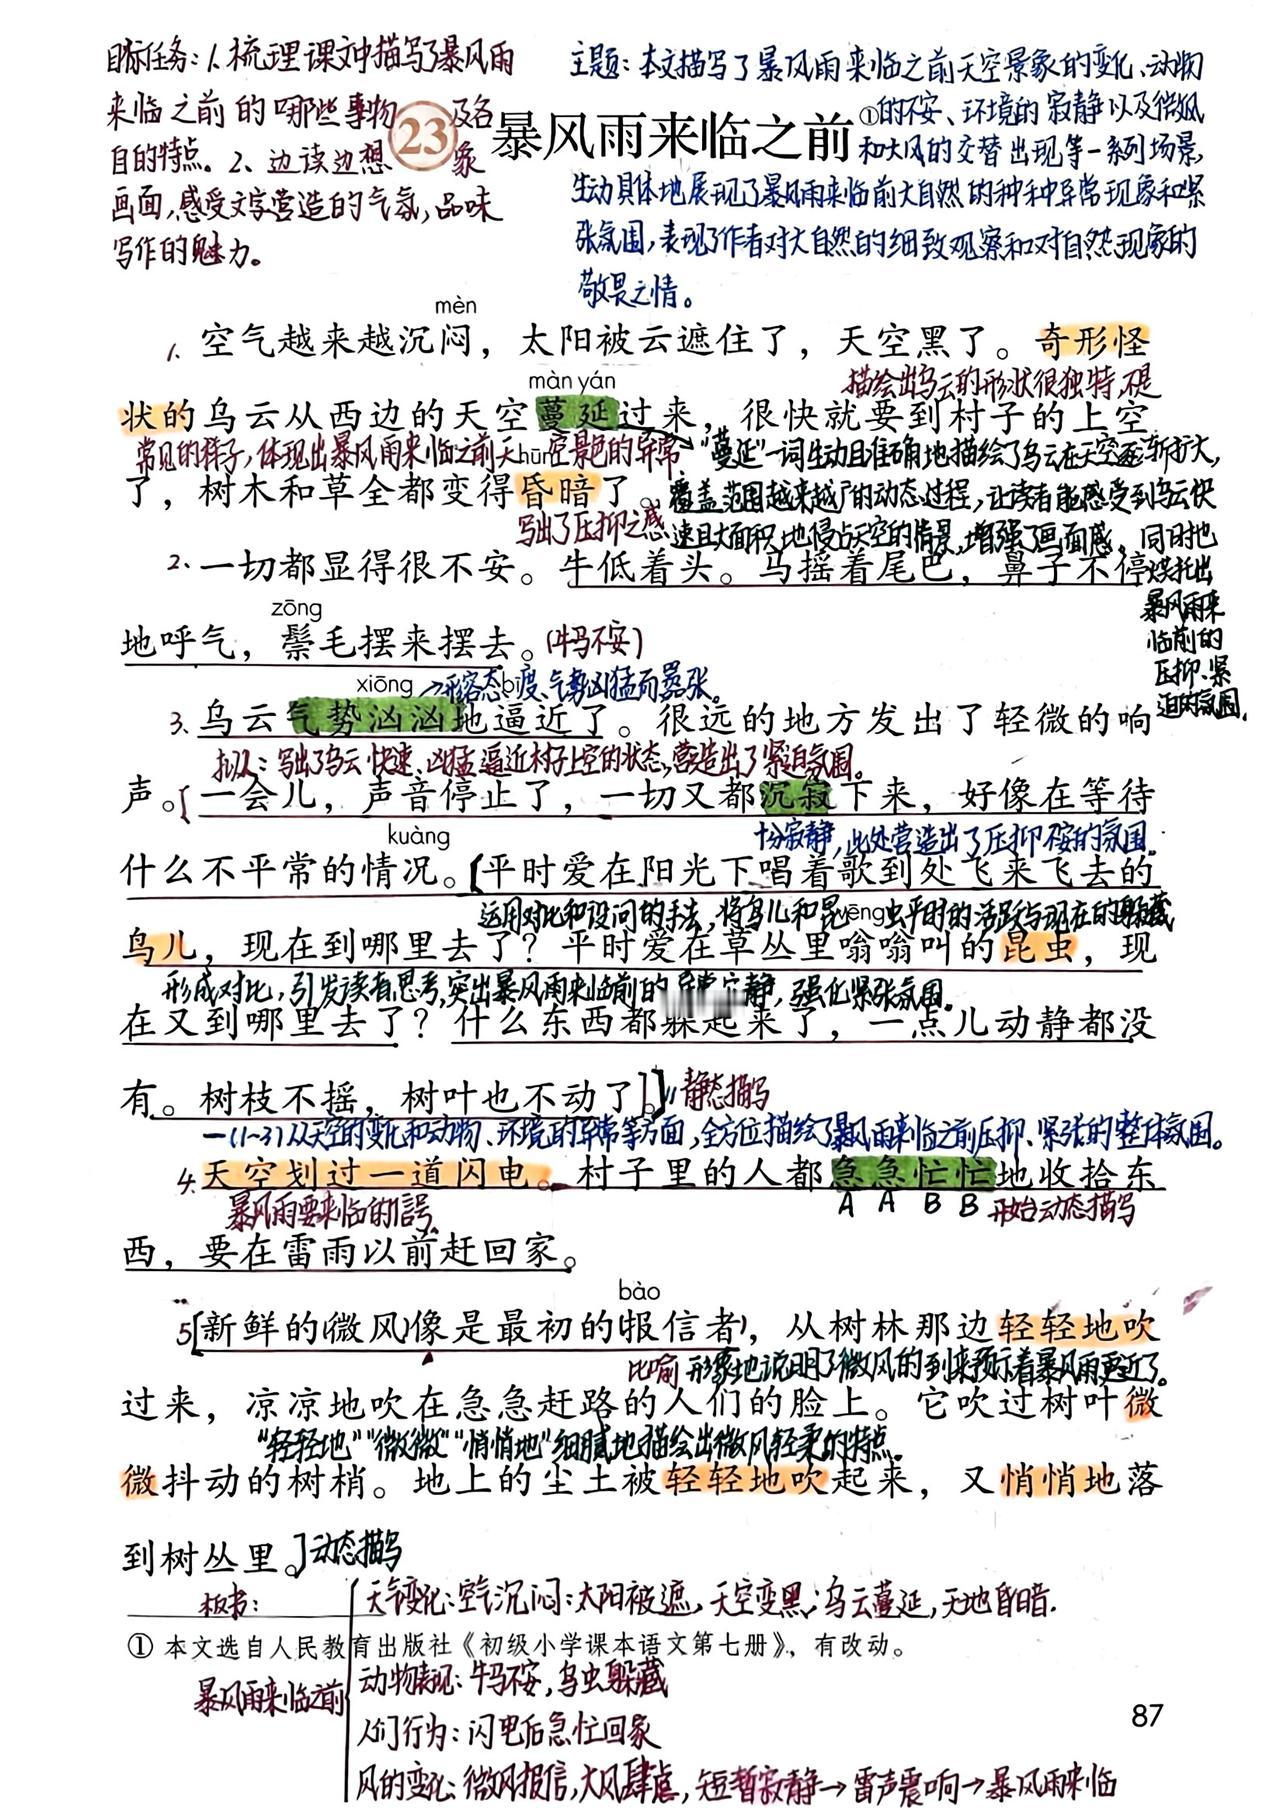 目标任务：1、梳理课文中描写了暴风雨
来临之前的哪些事物及各
自的特点。2、边读边想象
画面，感受文字营造的气氛，品味
写作的魅力。
主题：本文描写了暴风雨来临之前天空景象的变化、动物
的不安、环境的寂静以及微风
和大风的交替出现等一系列场景，
生动具体地展现了暴风雨来临前大自然的种种异常现象和紧
张氛围，表现了作者对大自然的细致观察和对自然现象的
敬畏之情。
23 暴风雨来临之前①
mèn
1、空气越来越沉闷，太阳被云遮住了，天空黑了。奇形怪
描绘出乌云的形状很独特，不是
màn yán
状的乌云从西边的天空蔓延过来，很快就要到村子的上空
常见的样子，体现出暴风雨来临之前天空景色的异常
"蔓延"一词生动且准确地描绘了乌云在天空逐渐扩大，
hūn
了，树木和草全都变得昏暗了。
覆盖范围越来越广的动态过程，让读者能感受到乌云快
写出了压抑之感
速且大面积地侵占天空的情景，增强了画面感，同时也
烘托出
暴风雨来
临前的
压抑、紧
迫的氛围。
2、一切都显得很不安。牛低着头。马摇着尾巴，鼻子不停
zōng
地呼气，鬃毛摆来摆去。(牛马不安)
xiōng →形容态度、气势凶猛而嚣张。
bī
3、乌云气势汹汹地逼近了。很远的地方发出了轻微的响
拟人：写出了乌云快速、凶猛逼近村子上空的状态，营造出了紧迫氛围。
声。[一会儿，声音停止了，一切又都沉寂下来，好像在等待
十分寂静，此处营造出了压抑不安的氛围。
kuàng
什么不平常的情况。[平时爱在阳光下唱着歌到处飞来飞去的
运用对比和设问的手法，将鸟儿和昆虫平时的活跃与现在的躲藏
wēng
鸟儿，现在到哪里去了？平时爱在草丛里嗡嗡叫的昆虫，现
形成对比，引发读者思考，突出暴风雨来临前的异常宁静，强化紧张氛围。
在又到哪里去了？什么东西都躲起来了，一点儿动静都没
有。树枝不摇，树叶也不动了。]]静态描写
一(1~3)从天空的变化和动物、环境的异常等方面，全方位描绘了暴风雨来临之前压抑、紧张的整体氛围。
4、天空划过一道闪电。村子里的人都急急忙忙地收拾东
暴风雨要来临的信号
A A B B 开始动态描写
西，要在雷雨以前赶回家。
bào
5[新鲜的(微风)像是最初的(报信者)，从树林那边轻轻地吹
比喻 形象地说明了微风的到来预示着暴风雨更近了。
过来，凉凉地吹在急急赶路的人们的脸上。它吹过树叶微
"轻轻地""微微""悄悄地"细腻地描绘出微风轻柔的特点。
微抖动的树梢。地上的尘土被轻轻地吹起来，又悄悄地落
到树丛里。]动态描写
板书：
天气变化：空气沉闷：太阳被遮，天空变黑；乌云蔓延，天地昏暗.
① 本文选自人民教育出版社《初级小学课本语文第七册》，有改动。
暴风雨来临之前
动物表现：牛马不安，鸟虫躲藏
人们行为：闪电后急忙回家
风的变化：微风报信，大风肆虐，短暂寂静→雷声震响→暴风雨来临
87